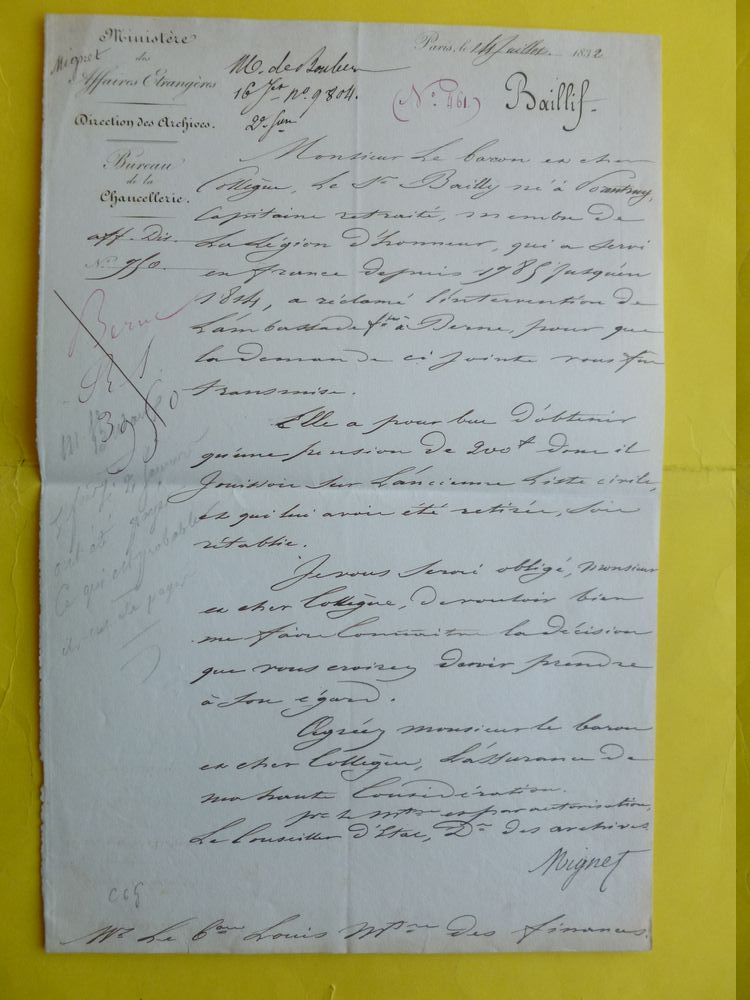 Ministère
des
Affaires Etrangères
Direction des Archives.
Bureau
de la
Chancellerie.
aff. Div.
N° 950
Mignet
M. de
16 n° 9804.
2e
Paris, le 14 Juillet 1832
(N° 461)
Baillif.
Monsieur le baron et cher
Collègue, le Sr Bailly né à Porentruy,
Capitaine retraité, membre de
la Légion d'honneur, qui a servi
en france depuis 1785 jusqu'en
1814, a réclamé l'intervention de
l'ambassade fse à Berne, pour que
la demande ci jointe vous fut
transmise.
Elle a pour but d'obtenir
qu'une pension de 200f dont il
jouissoit sur l'ancienne liste civile,
et qui lui avoit été retirée, soit
rétablie.
Je vous serai obligé, monsieur
et cher Collègue, de vouloir bien
me faire Connaitre la décision
que vous croirez devoir prendre
à son égard.
Agréez monsieur le baron
et cher Collègue, l'assurance de
ma haute Considération.
pr le mtre et par autorisation,
Le Conseiller d'Etat, Dr des archives
Mignet
Mr Le Bon Louis Mtre des finances.
Berne
ont été
Ce qui est probable